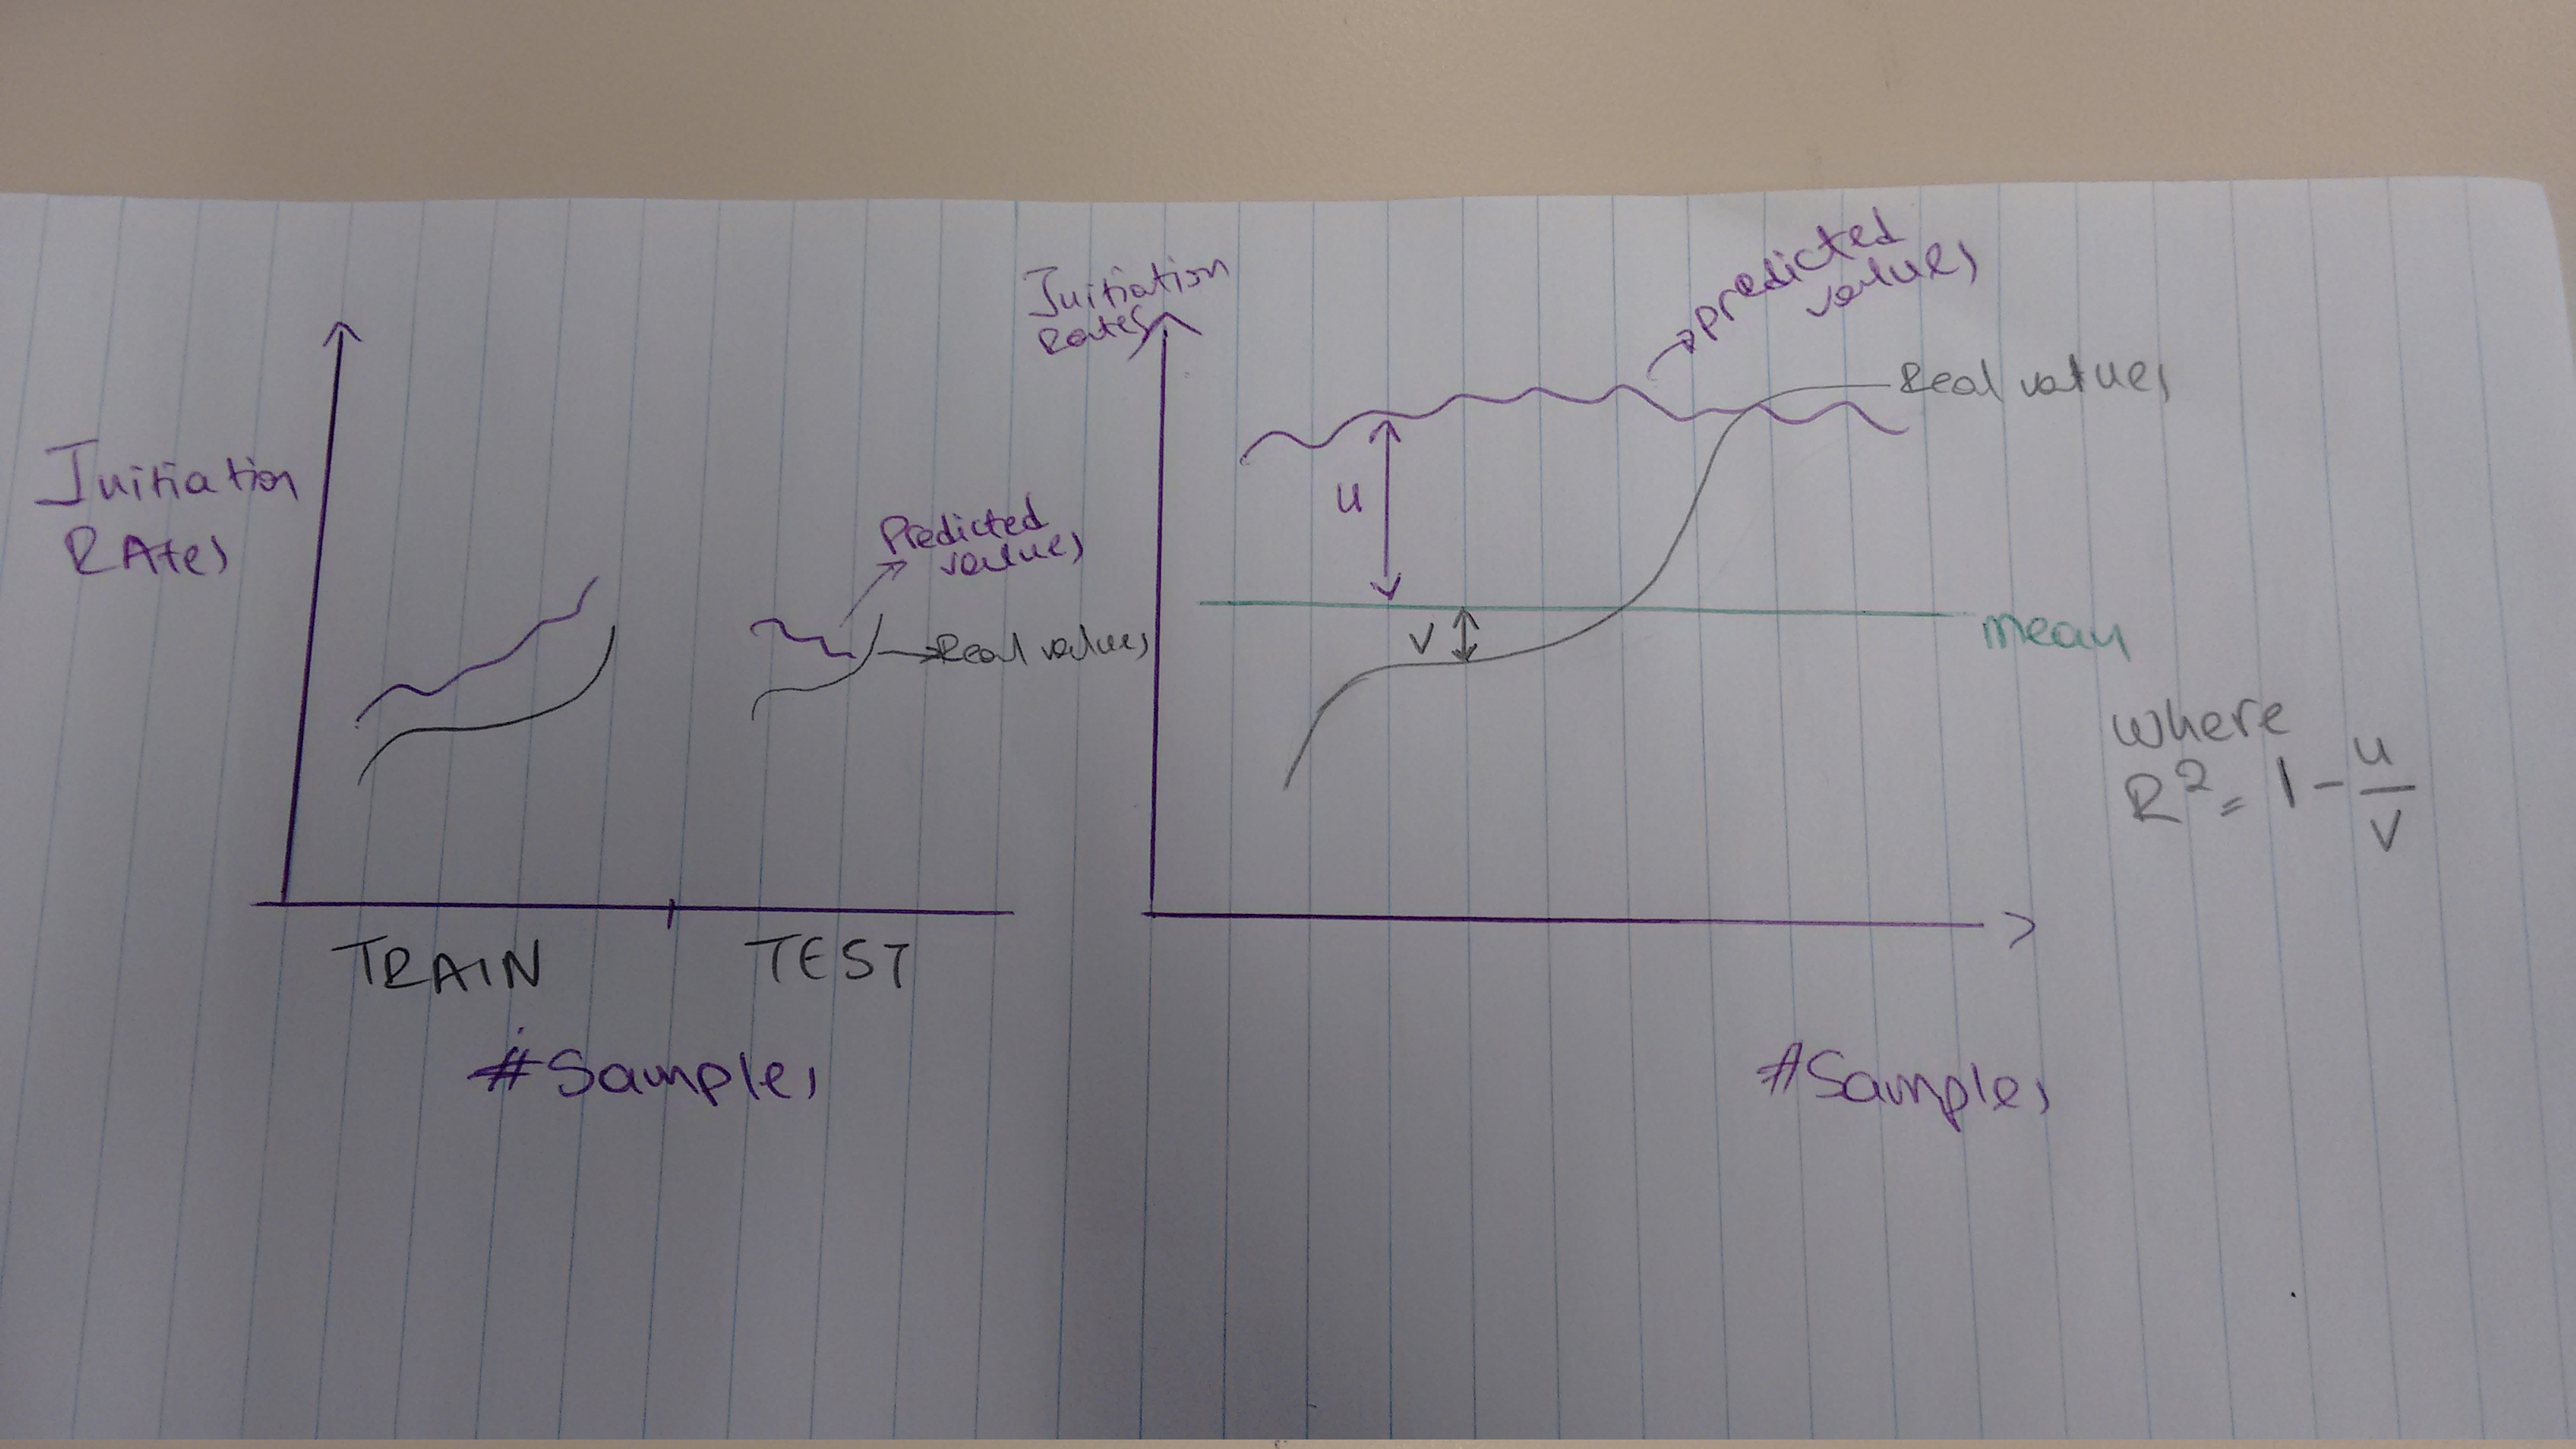 Initiation
RAtes
Predicted
values
Real values
TRAIN
TEST
#Samples
Initiation
Rates
predicted
values
Real values
u
v
mean
where
R² = 1 - u/v
#Samples